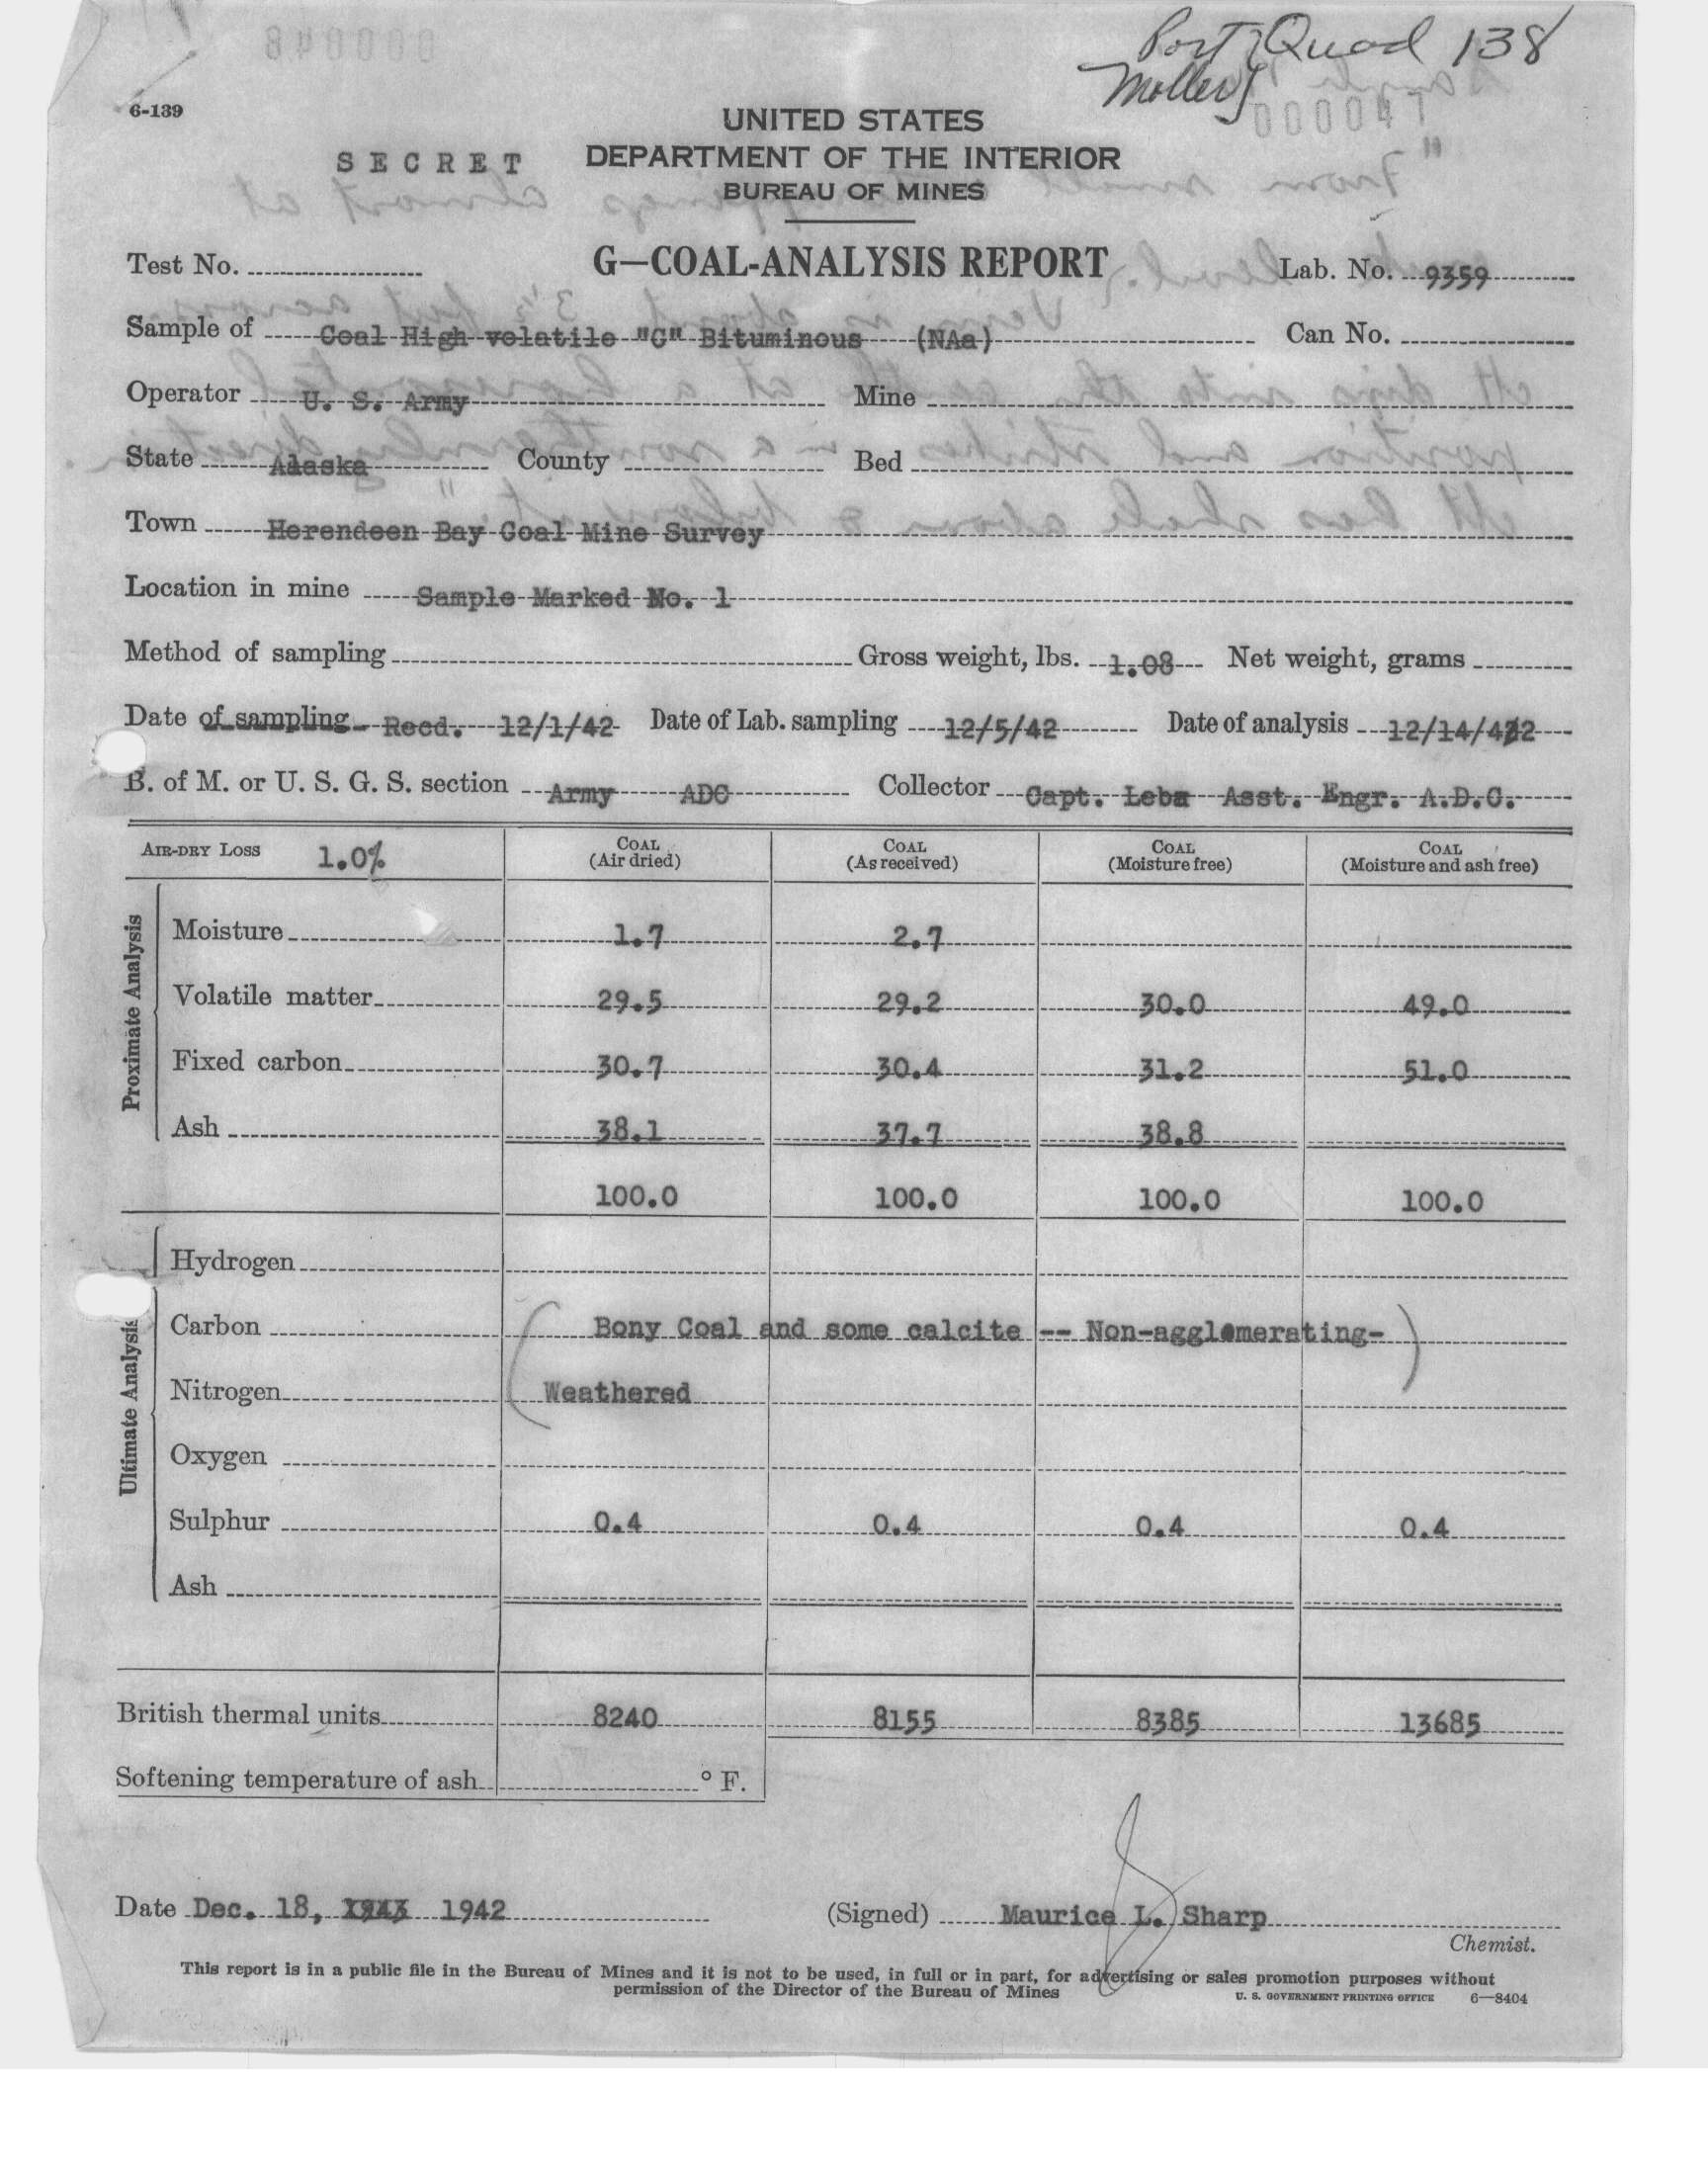 Port Quad 138
Moller
000048
000047
6-139
UNITED STATES
SECRET DEPARTMENT OF THE INTERIOR
BUREAU OF MINES
Test No. G—COAL-ANALYSIS REPORT Lab. No. 9359
Sample of Coal High volatile "C" Bituminous (NAa) Can No.
Operator U. S. Army Mine
State Alaska County Bed
Town Herendeen Bay Coal Mine Survey
Location in mine Sample Marked No. 1
Method of sampling Gross weight, lbs. 1.08 Net weight, grams
Date of sampling Recd. 12/1/42 Date of Lab. sampling 12/5/42 Date of analysis 12/14/42
B. of M. or U. S. G. S. section Army ADC Collector Capt. Asst. Engr. A.D.C.
AIR-DRY LOSS 1.0% COAL (Air dried) COAL (As received) COAL (Moisture free) COAL (Moisture and ash free)
Proximate Analysis
Moisture 1.7 2.7
Volatile matter 29.5 29.2 30.0 49.0
Fixed carbon 30.7 30.4 31.2 51.0
Ash 38.1 37.7 38.8
100.0 100.0 100.0 100.0
Ultimate Analysis
Hydrogen
Carbon (Bony Coal and some calcite -- Non-agglomerating-)
Nitrogen Weathered
Oxygen
Sulphur 0.4 0.4 0.4 0.4
Ash
British thermal units 8240 8155 8385 13685
Softening temperature of ash ° F.
Date Dec. 18, 1942 (Signed) Maurice L. Sharp
Chemist.
This report is in a public file in the Bureau of Mines and it is not to be used, in full or in part, for advertising or sales promotion purposes without
permission of the Director of the Bureau of Mines U. S. GOVERNMENT PRINTING OFFICE 6—8404